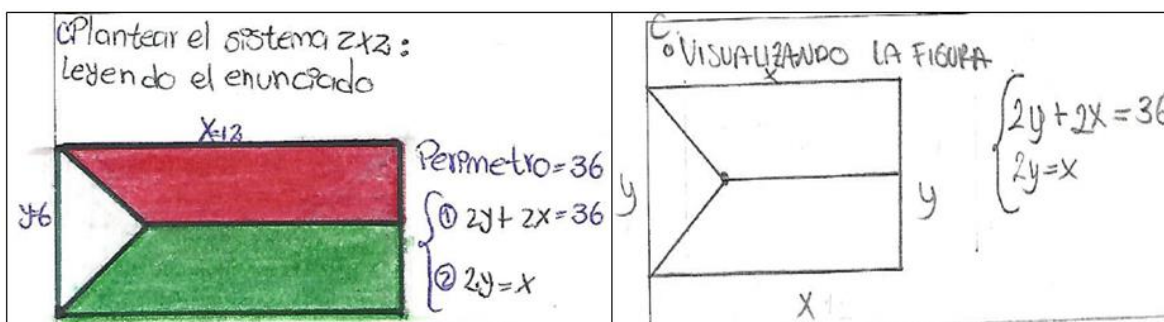 C. Plantear el sistema 2x2:
Leyendo el enunciado
X=12
y=6
Perimetro=36
① 2y+2x=36
② 2.y=x
C.
• VISUALIZANDO LA FIGURA
x
y
y
X
2y+2x=36
2y=x